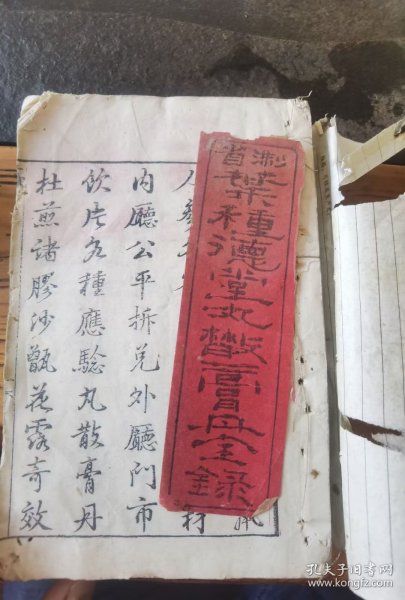 淛省
葉種德堂丸散膏丹全錄
材
人參
內廳公平拆兌外廳門市
飲片各種應騐丸散膏丹
杜煎諸膠沙甑花露奇效
孔夫子旧书网
www.kongfz.com